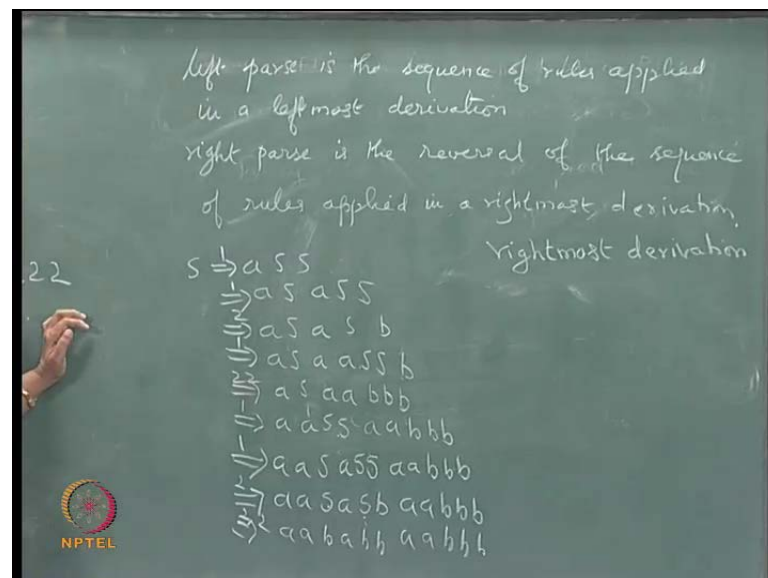 left parse is the sequence of rules applied
in a leftmost derivation
right parse is the reversal of the sequence
of rules applied in a rightmost derivation.
rightmost derivation
22
S ⇒ a S S
⇒ a S a S S
⇒ a S a S b
⇒ a S a a S S b
⇒ a S a a b b b
⇒ a a S S a a b b b
⇒ a a S a S S a a b b b
⇒ a a S a S b a a b b b
⇒ a a b a b b a a b b b
NPTEL